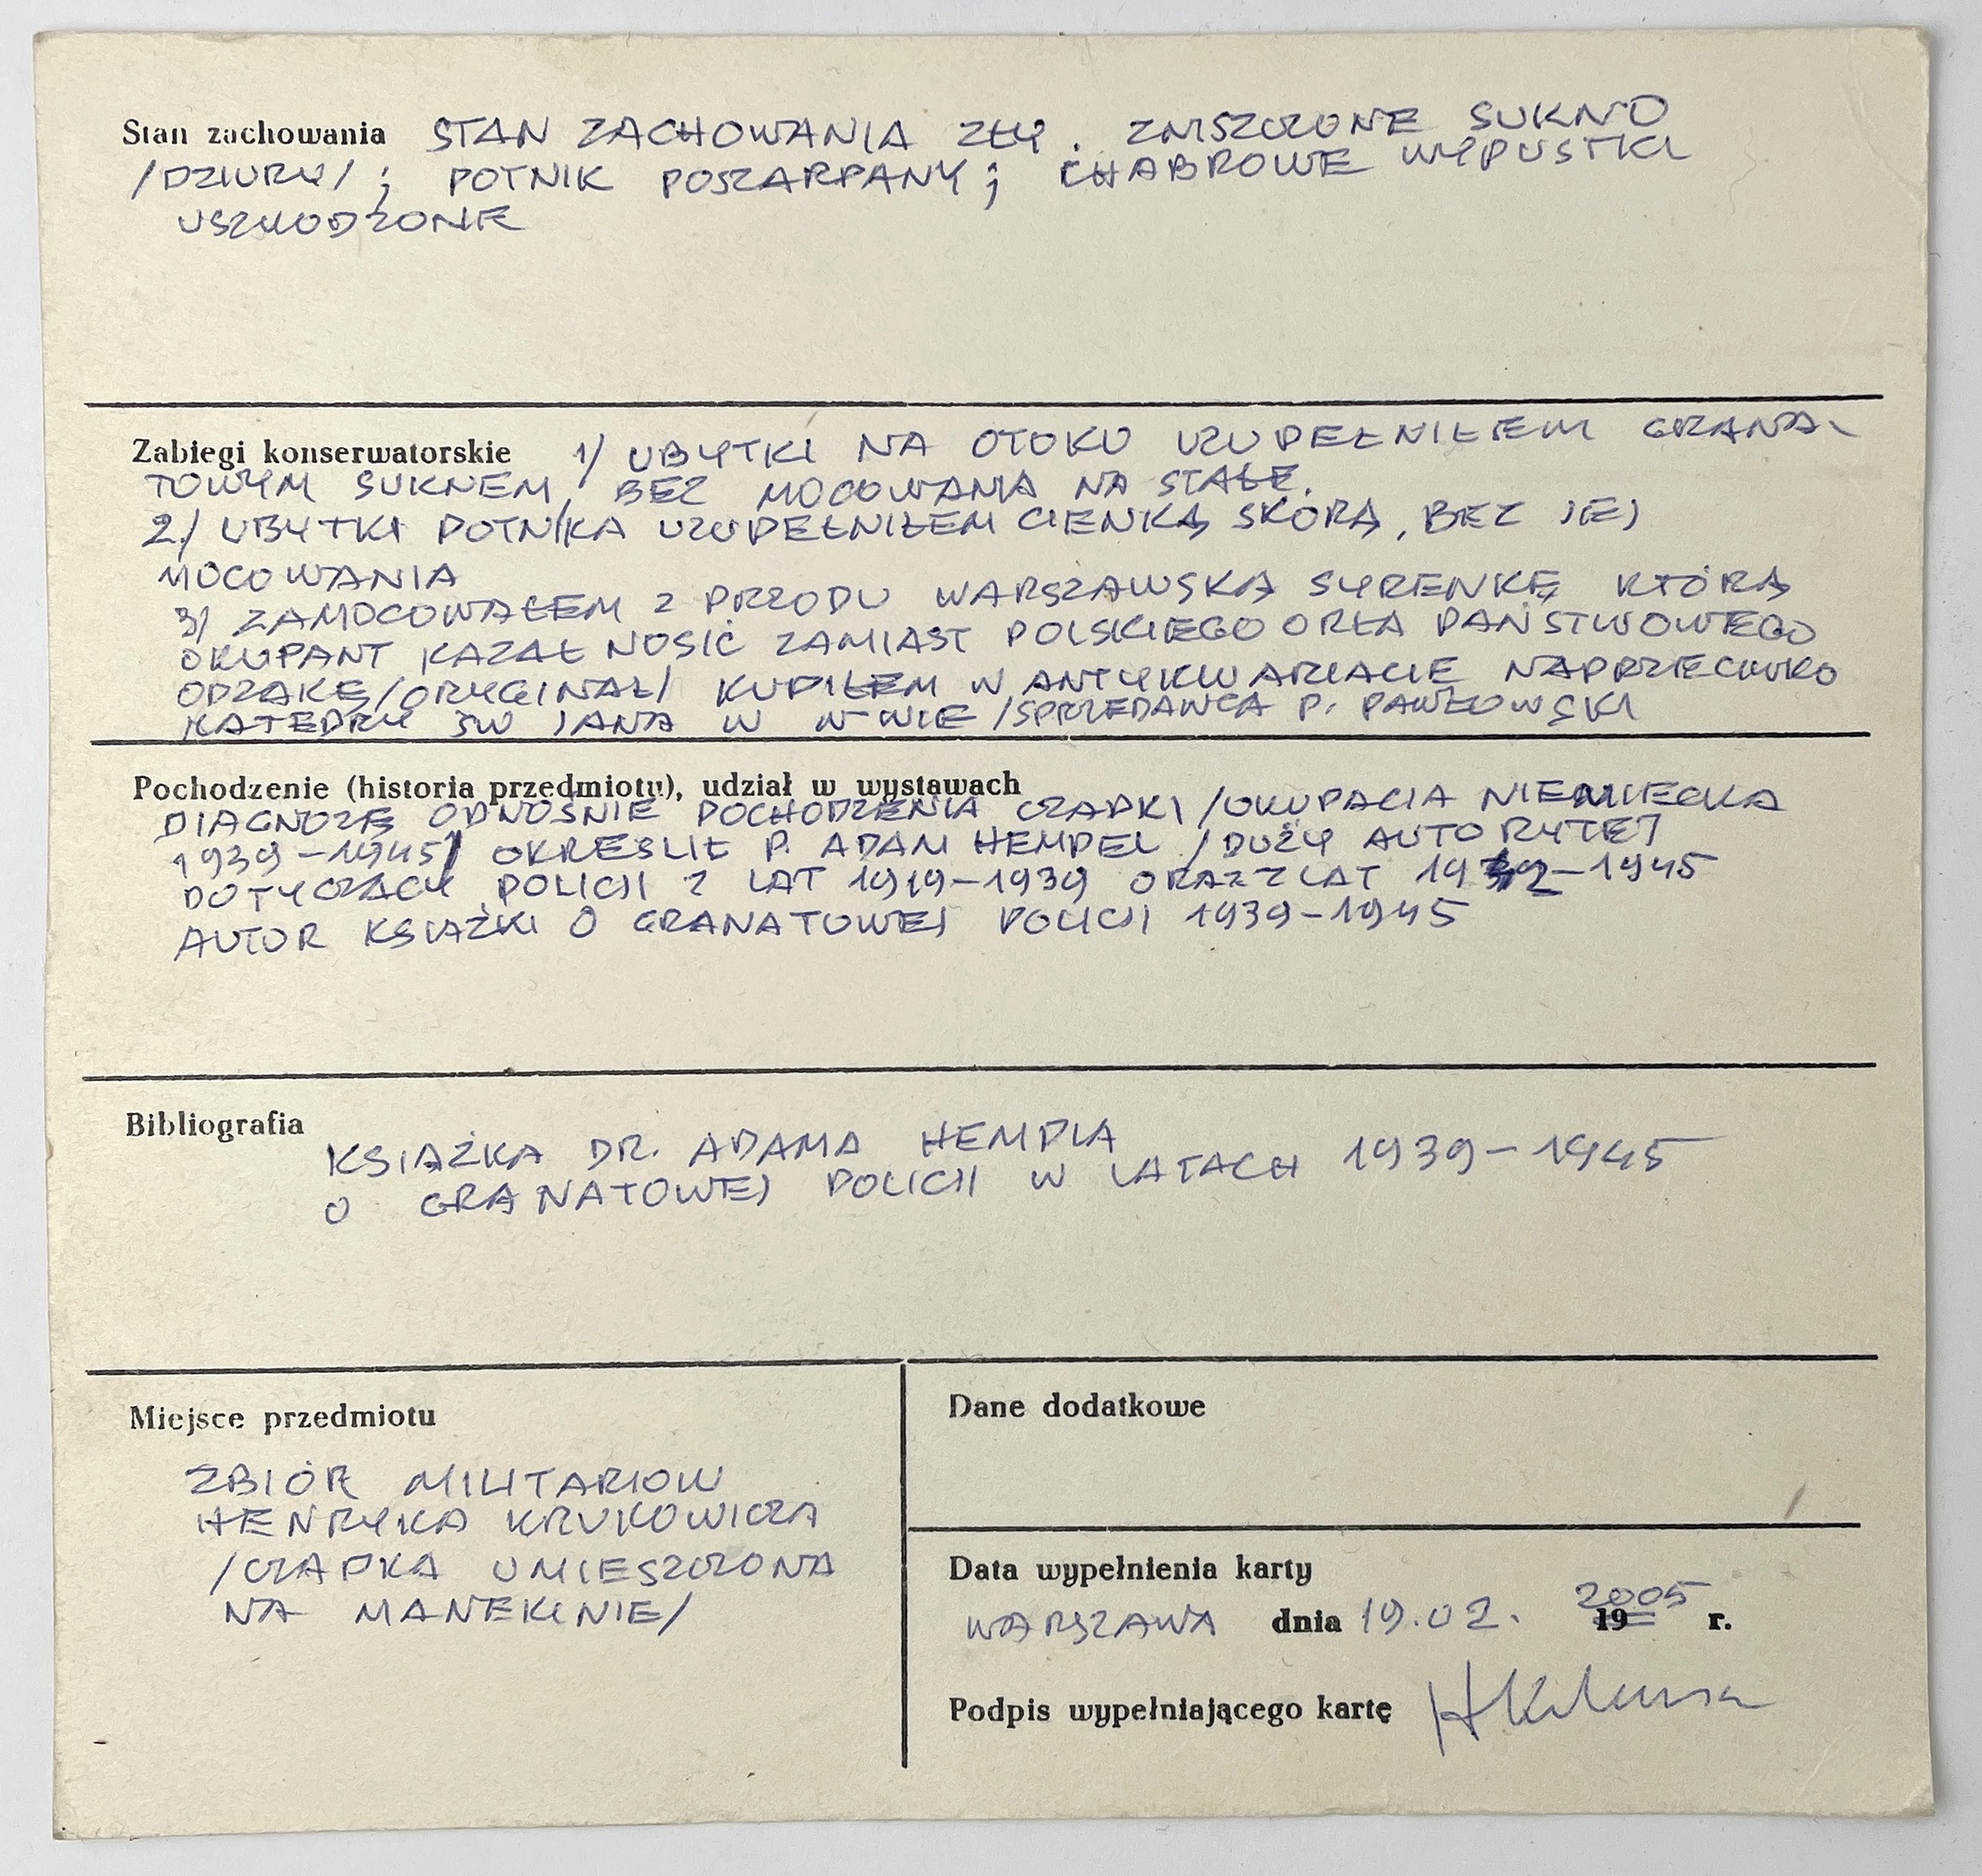 Stan zachowania STAN ZACHOWANIA ZŁY. ZNISZCZONE SUKNO
/DZIURY/; POTNIK POSZARPANY; CHABROWE WYPUSTKI
USZKODZONE
Zabiegi konserwatorskie 1/ UBYTKI NA OTOKU UZUPEŁNIŁEM GRANA-
TOWYM SUKNEM, BEZ MOCOWANIA NA STAŁE.
2./ UBYTKI POTNIKA UZUPEŁNIŁEM CIENKĄ SKÓRĄ, BEZ JEJ
MOCOWANIA
3/ ZAMOCOWAŁEM Z PRZODU WARSZAWSKĄ SYRENKĘ KTÓRĄ
OKUPANT KAZAŁ NOSIĆ ZAMIAST POLSKIEGO ORŁA PAŃSTWOWEGO
ODZAKĘ/ORYGINAŁ/ KUPIŁEM W ANTYKWARIACIE NAPRZECIWKO
KATEDRY ŚW JANA W W-WIE /SPRZEDAWCA P. PAWŁOWSKI
Pochodzenie (historia przedmiotu), udział w wystawach
DIAGNOZĘ ODNOŚNIE POCHODZENIA CZAPKI /OKUPACJA NIEMIECKA
1939-1945/ OKREŚLIŁ P. ADAM HEMPEL /DUŻY AUTORYTET
DOTYCZĄCY POLICJI Z LAT 1919-1939 ORAZ Z LAT 1942-1945
AUTOR KSIĄŻKI O GRANATOWEJ POLICJI 1939-1945
Bibliografia
KSIĄŻKA DR. ADAMA HEMPLA
O GRANATOWEJ POLICJI W LATACH 1939-1945
Miejsce przedmiotu
ZBIÓR MILITARIOW
HENRYKA KRUKOWICZA
/CZAPKA UMIESZCZONA
NA MANEKINIE/
Dane dodatkowe
Data wypełnienia karty
WARSZAWA dnia 19.02. 19 2005 r.
Podpis wypełniającego kartę